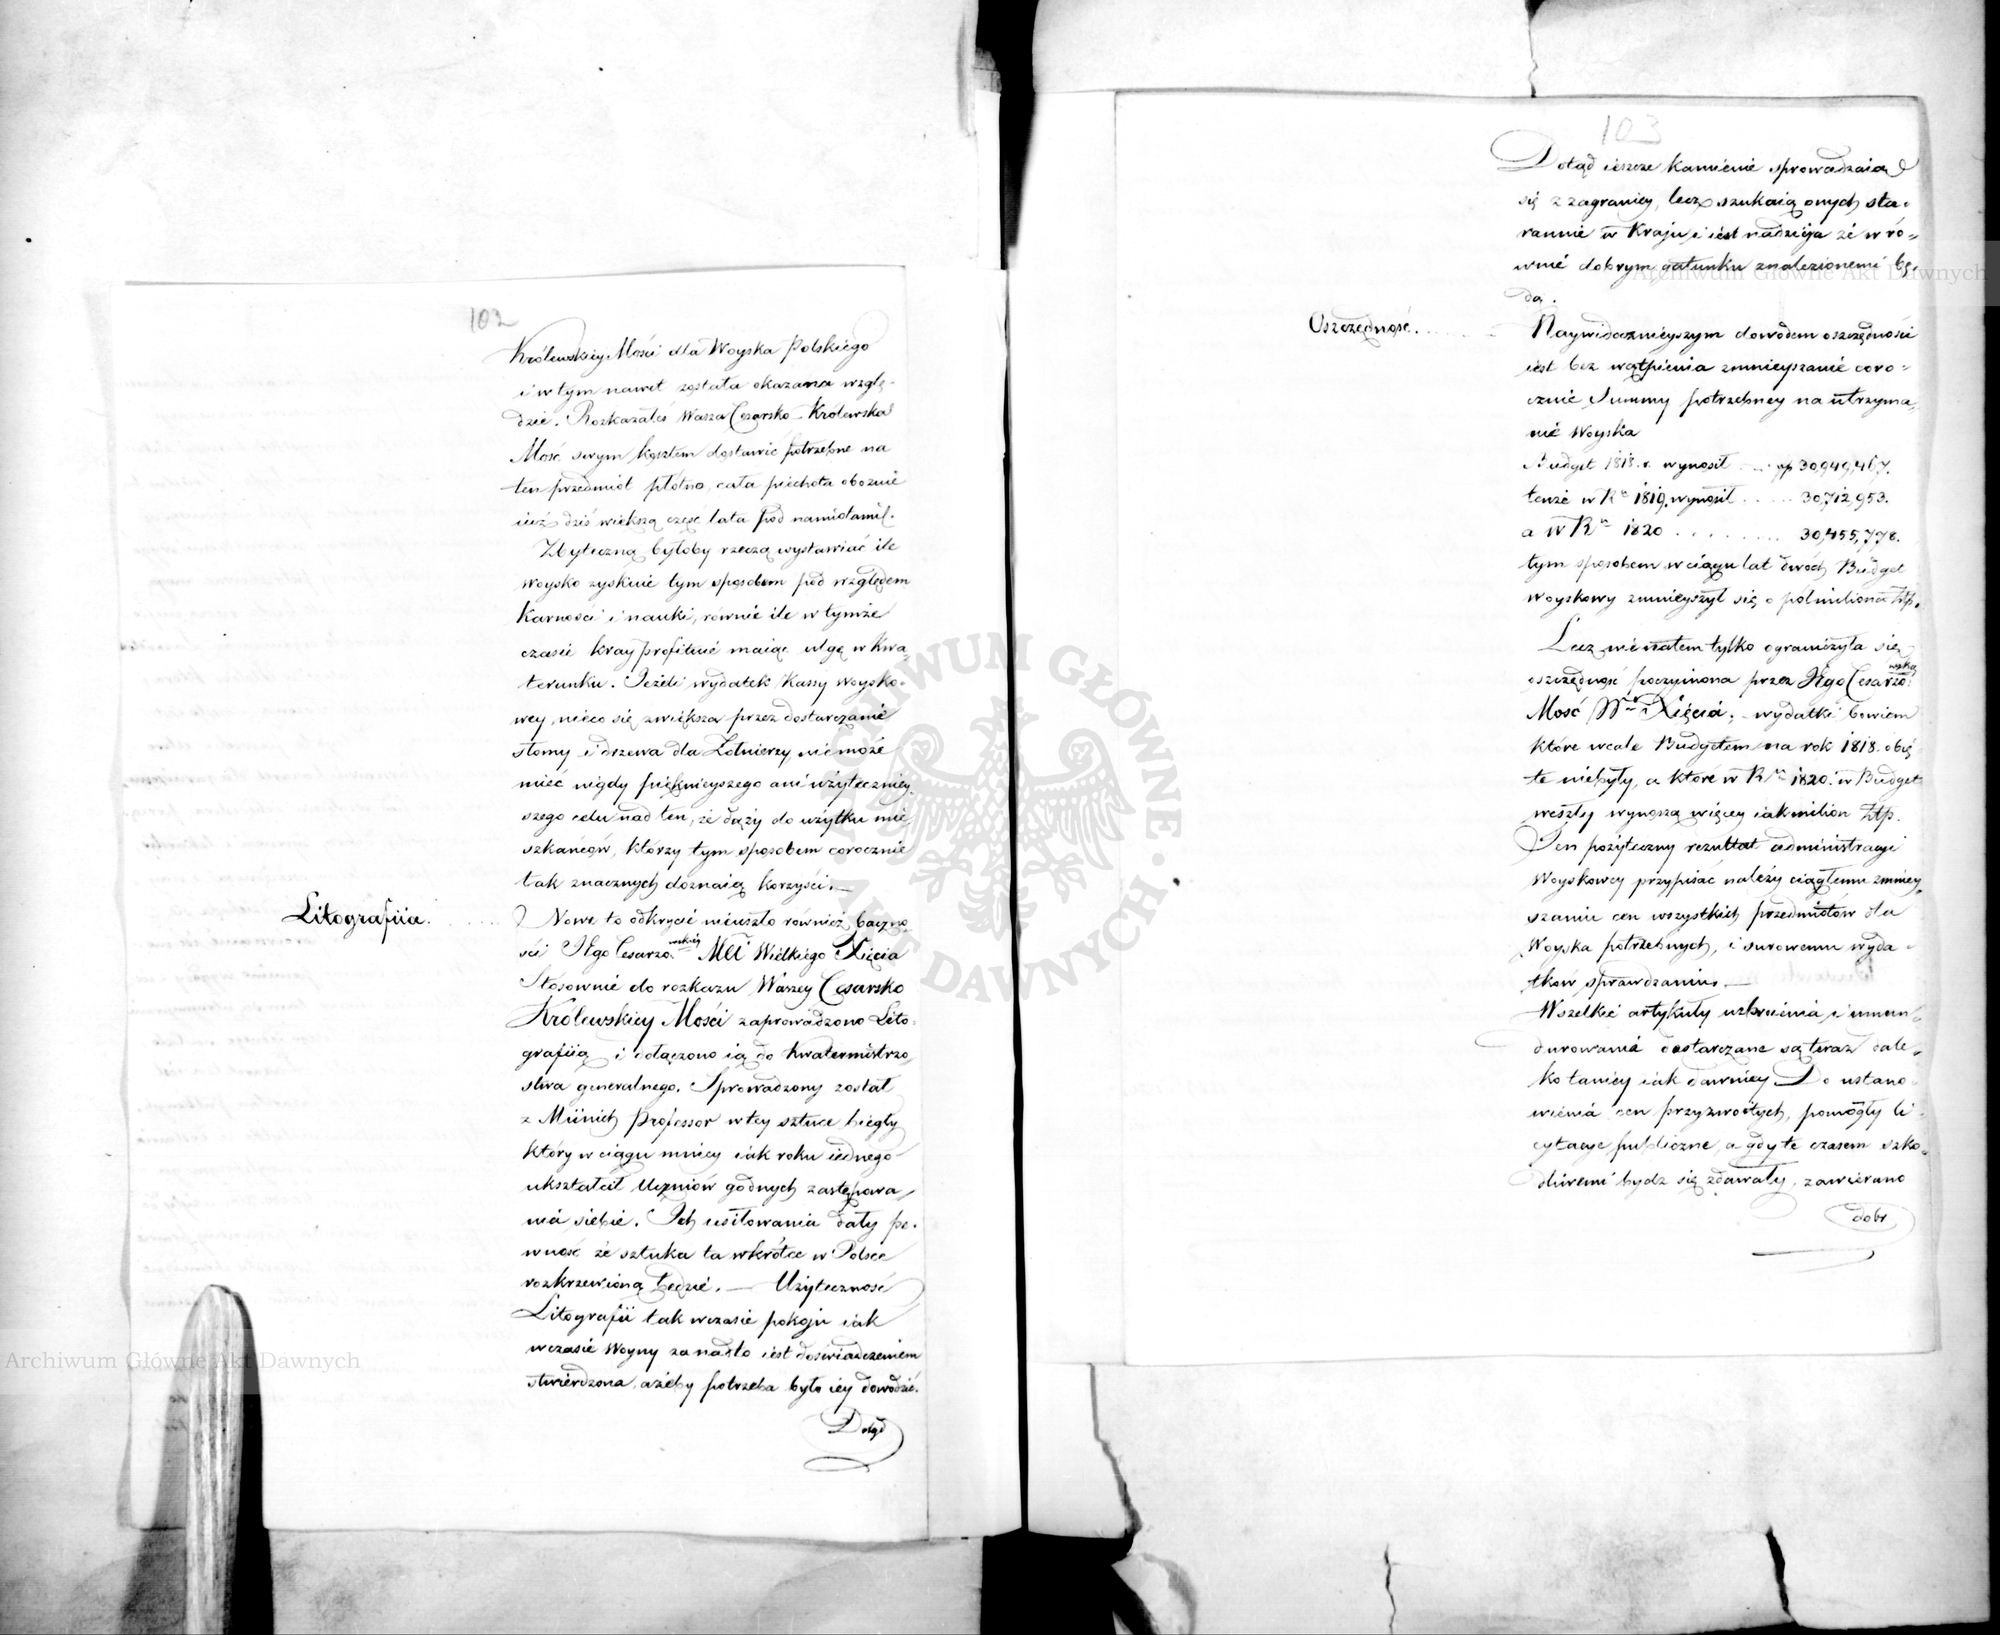 102
Królewskiey Mości dla Woyska Polskiego
i w tym nawet została okazana wzglę-
dzie. Rozkazałeś Wasza Cesarsko-Królewska
Mość swym kosztem dostawić potrzebne na
ten przedmiot płótno, cała piechota obozuie
iuż dziś większą część lata pod namiotami.
Zbyteczną byłoby rzeczą wystawiać ile
woysko zyskuie tym sposobem pod względem
karności i nauki, równie ile w tymże
czasie kray profituie maiąc ulgę w kwa-
terunku. Jeżeli wydatek Kassy woysko-
wey, nieco się zwiększa przez dostarczanie
słomy i drzewa dla Żołnierzy, nie może
mieć nigdy pięknieyszego ani użyteczniey-
szego celu nad ten, że dąży do użytku mie-
szkańców, którzy tym sposobem corocznie
tak znacznych doznaią korzyści.—
Litografiia.......
Nowe to odkrycie nieuszło również baczno
ści Jego Cesarzo-wskiéy Mci Wielkiego Xięcia
Stosownie do rozkazu Waszey Cesarsko
Królewskiey Mości zaprowadzono Lito-
grafiią i dołączono ią do Kwatermistrzo
stwa generalnego. Sprowadzony został
z Münich Professor w tey sztuce biegły
który w ciągu mniey iak roku iednego
ukształcił Uczniów godnych zastępowa-
nia siebie. Ich usiłowania dały pe-
wność że sztuka ta wkrótce w Polsce
rozkrzewioną będzie.— Użyteczność
Litografii tak w czasie pokoju iak
w czasie Woyny zanadto iest doświadczeniem
stwierdzona, ażeby potrzeba było iey dowodzić.
Dotąd
103
Dotąd ieszcze kamienie sprowadzaią
się z zagranicy, lecz szukaią onych sta-
rannie w Kraju i iest nadzieja że w ró-
wnie dobrym gatunku znalezionemi bę-
dą.
Oszczędność.......
Naywidocznieyszym dowodem oszczędności
iest bez wątpienia zmnieyszanie coro-
cznie Summy potrzebney na utrzyma-
nie Woyska
Budget 1818. r. wynosił .... zp 30,949,467.
tenże w Ru 1819. wynosił ..... 30,712,953.
a w Ru 1820 ......... 30,455,778.
tym sposobem w ciągu lat dwóch Budget
woyskowy zmnieyszył się o pół miliona Złp.
Lecz nie na tem tylko ograniczyła się
oszczędność poczyniona przez Jego Cesarzo-wską
Mość Wgo Xięcia; wydatki bowiem
które wcale Budgetem na rok 1818. obię
te niebyły, a które w Ru 1820. w Budget
weszły wynoszą więcey iak milion Złp.
Ten pożyteczny rezultat administracyi
Woyskowey przypisać należy ciągłemu zmniey-
szaniu cen wszystkich przedmiotów dla
Woyska potrzebnych, i surowemu wyda-
tków sprawdzaniu.—
Wszelkie artykuły uzbroienia i umun-
durowania dostarczane są teraz dale-
ko taniey iak dawniey Do ustano-
wienia cen przyzwoitych, pomogły li-
cytacye publiczne, a gdy te czasem szko-
dliwemi bydz się zdawały, zawierano
dobr
Archiwum Główne Akt Dawnych
Archiwum Główne Akt Dawnych
ARCHIWUM GŁÓWNE AKT DAWNYCH